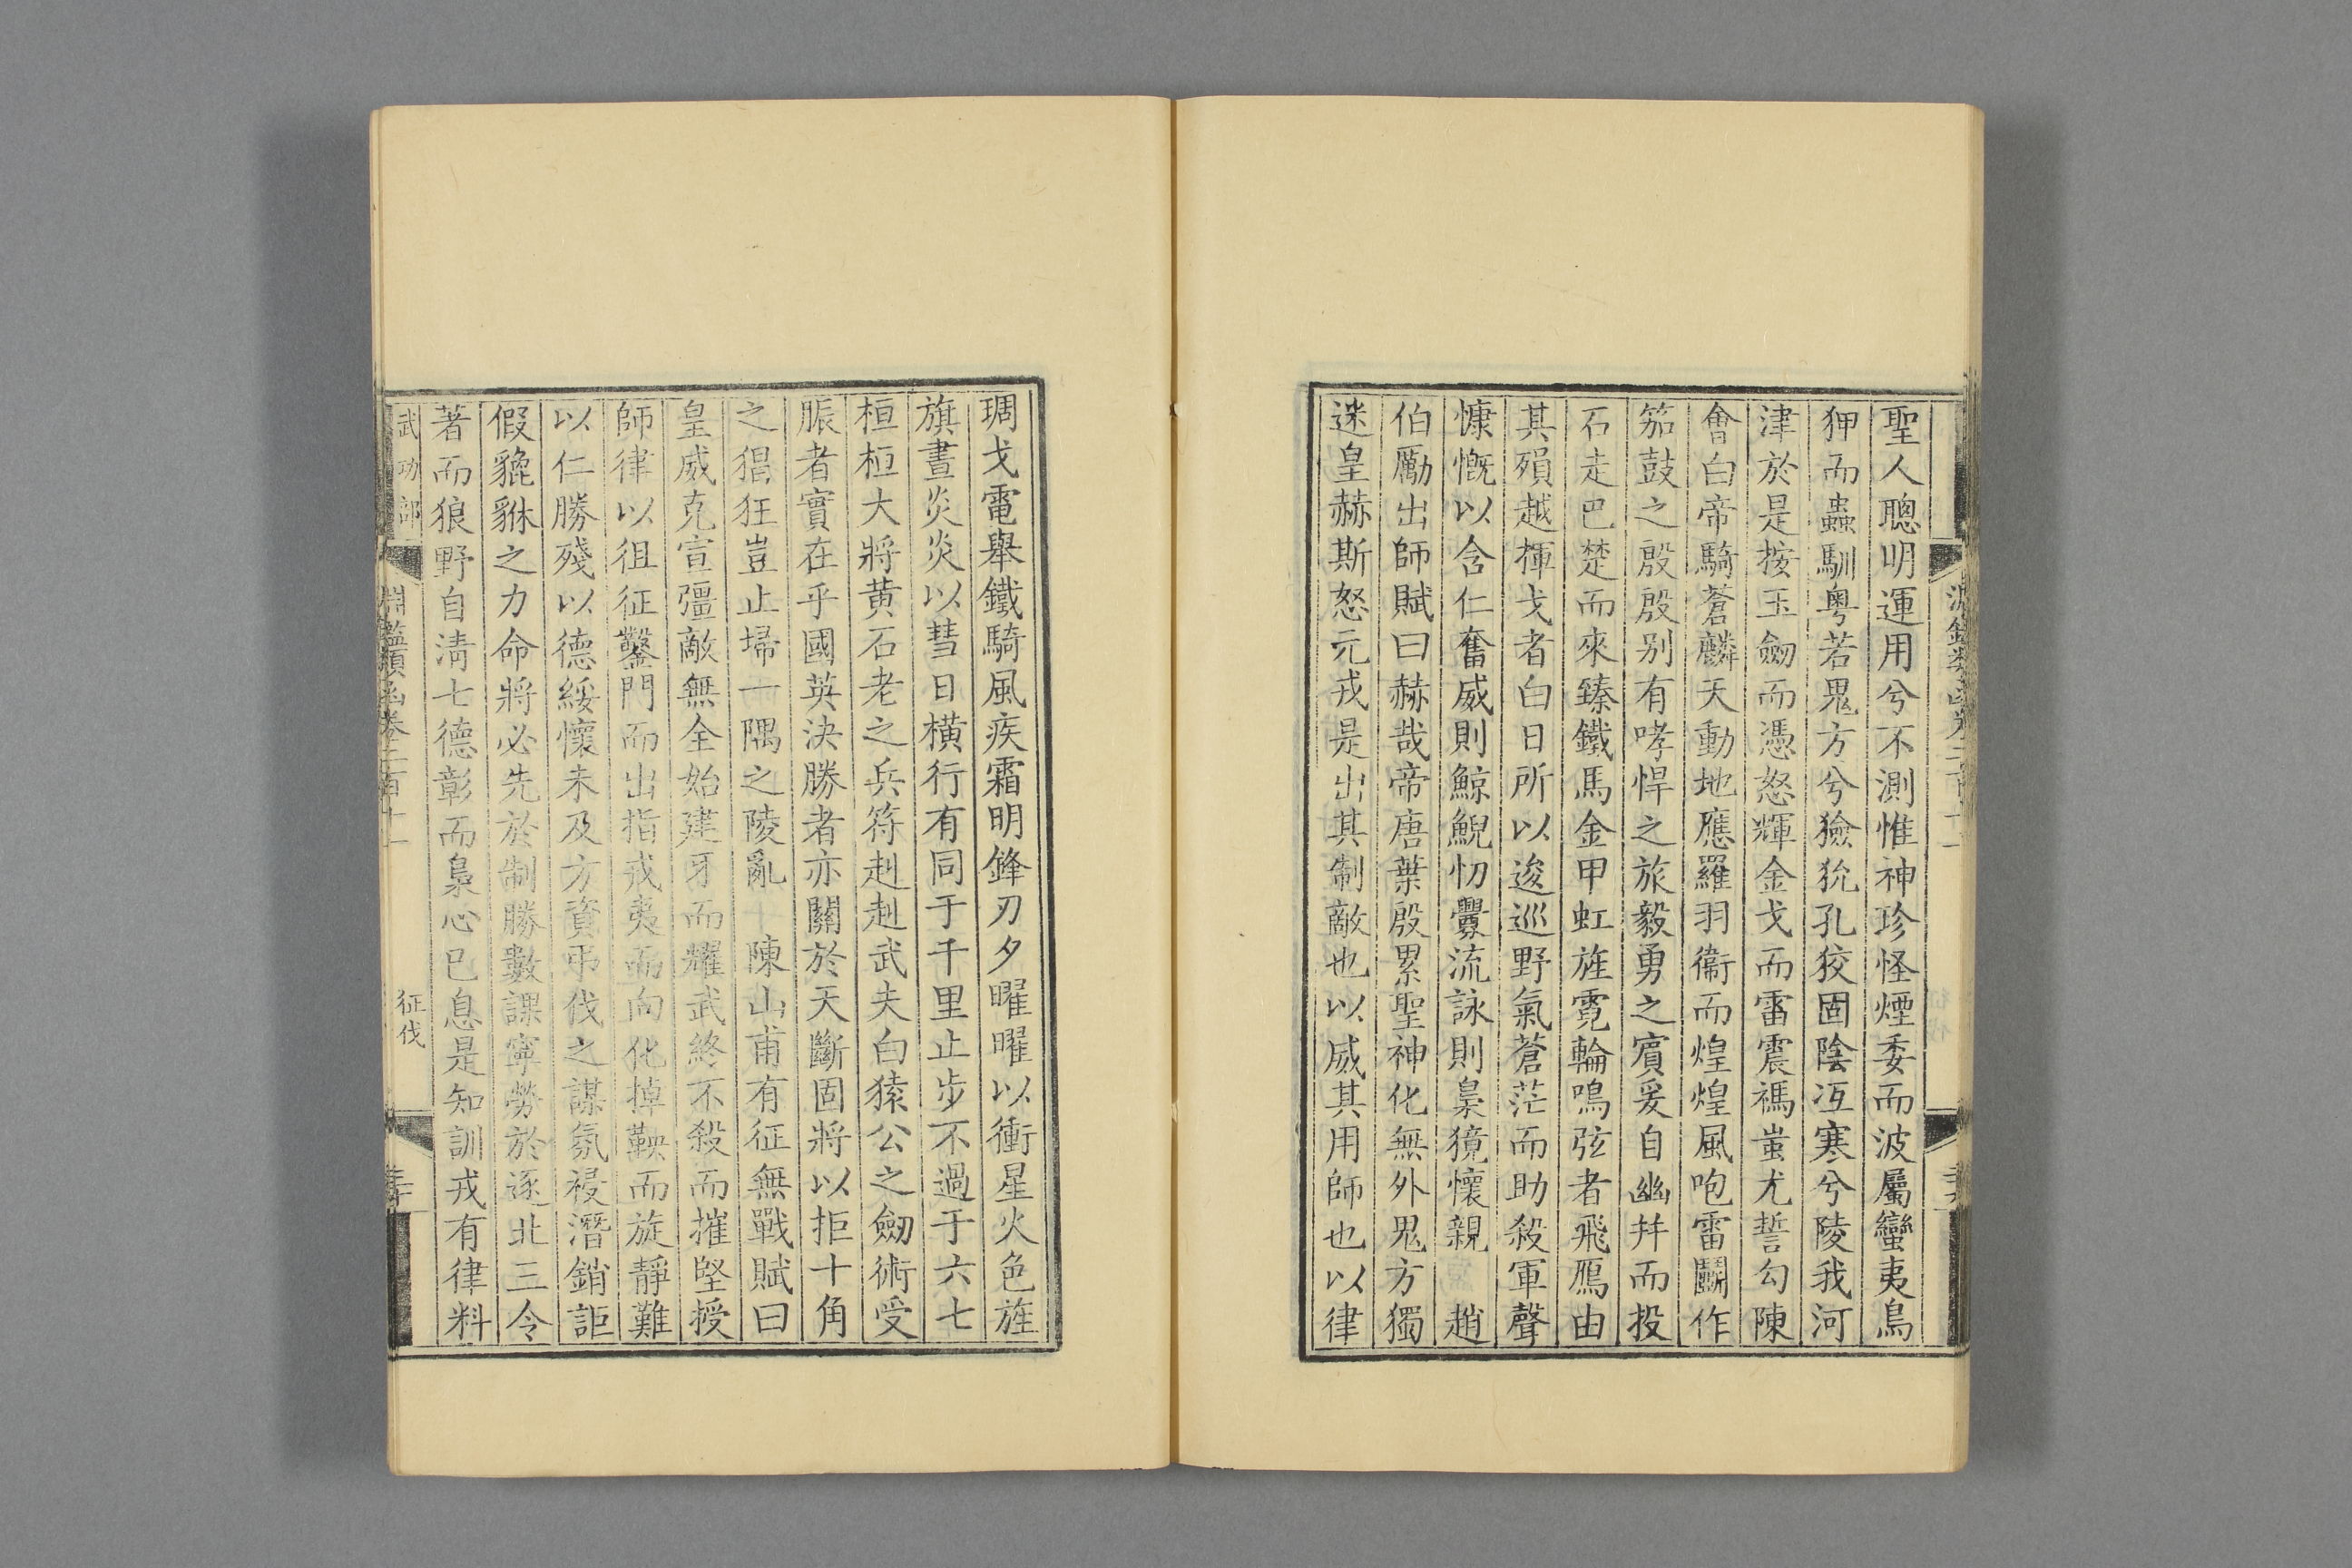 聖人聰明運用兮不測惟神珍怪煙委而波屬蠻夷鳥
狎而蟲馴粵若鬼方兮獫狁孔狡固陰冱寒兮陵我河
津於是按玉劒而憑怒輝金戈而雷震禡蚩尤誓勾陳
會白帝騎蒼麟天動地應羅羽衞而煌煌風咆雷鬬作
笳鼓之殷殷别有哮悍之旅毅勇之賓爰自幽并而投
石走巴楚而來臻鐵馬金甲虹旌霓輪鳴弦者飛鴈由
其殞越揮戈者白日所以逡巡野氣蒼茫而助殺軍聲
慷慨以含仁奮威則鯨鯢忉釁流詠則梟獍懷親 趙
伯勵出師賦曰赫哉帝唐葉殷累聖神化無外鬼方獨
迷皇赫斯怒元戎是出其制敵也以威其用師也以律
琱戈電舉鐵騎風疾霜明鋒刃夕曜曜以衝星火色旌
旗晝炎炎以彗日橫行有同于千里止步不過于六七
桓桓大將黄石老之兵符赳赳武夫白猿公之劒術受
脤者實在乎國英決勝者亦關於天斷固將以拒十角
之猖狂豈止埽一隅之陵亂 陳山甫有征無戰賦曰
皇威克宣彊敵無全始建牙而耀武終不殺而摧堅授
師律以徂征鑿門而出指戎夷而向化掉鞅而旋靜難
以仁勝殘以德綏懷未及方資弔伐之謀氛祲潛銷詎
假貔貅之力命將必先於制勝數課寧勞於逐北三令
著而狼野自清七德彰而梟心已息是知訓戎有律料
武功部 淵鑑類函卷二百十一 征伐